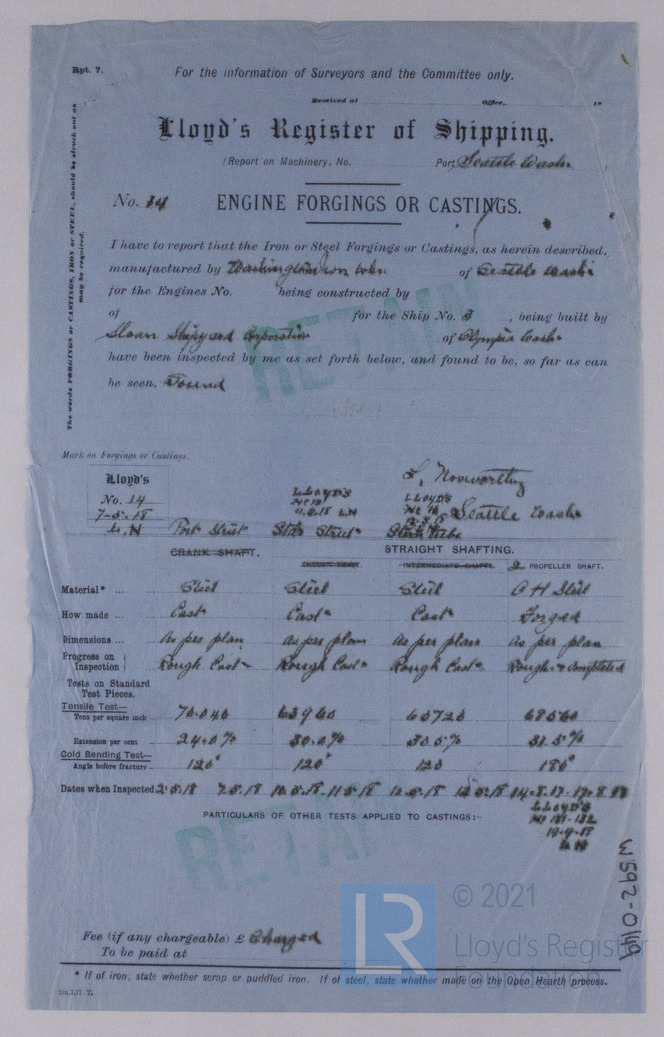 Rpt. 7.
For the information of Surveyors and the Committee only.
Received at Office, 19
Lloyd's Register of Shipping.
(Report on Machinery, No. Port Seattle Wash.
No. 14 ENGINE FORGINGS OR CASTINGS.
The words FORGINGS or CASTINGS, IRON or STEEL, should be struck out as may be required.
I have to report that the Iron or Steel Forgings or Castings, as herein described,
manufactured by Washington Iron Wks. of Seattle Wash.
for the Engines No. being constructed by
of for the Ship No. 3, being built by
Sloan Shipyard Corporation of Olympia Wash.
have been inspected by me as set forth below, and found to be, so far as can
be seen, Sound
RETAIN
Mark on Forgings or Castings.
Lloyd's
No. 14
7-5-18
L. N
LLOYD'S
LLOYD'S
Seattle Wash.
Stern
CRANK SHAFT, STRAIGHT SHAFTING.
THRUST SHAFT. INTERMEDIATE SHAFTS. PROPELLER SHAFT.
Material* ... Steel Steel Steel O H Steel
How made ... Cast. Cast. Cast. Forged
Dimensions ... As per plan As per plan As per plan As per plan
Progress on Inspection Rough Cast. Rough Cast. Rough Cast. Rough & completed
Tests on Standard Test Pieces.
Tensile Test—
Tons per square inch 70.040 63960 65720 68560
Extension per cent 24.0% 30.0% 30.5% 31.5%
Cold Bending Test—
Angle before fracture 120° 120° 120 180°
Dates when Inspected 2.5.18 7.5.18
LLOYD'S
No 131-132
L N
PARTICULARS OF OTHER TESTS APPLIED TO CASTINGS:—
RETAIN
W592-0149
Fee (if any chargeable) £ Charged
To be paid at
LR
© 2021
Lloyd's Register
Foundation
* If of iron, state whether scrap or puddled iron. If of steel, state whether made on the Open Hearth process.